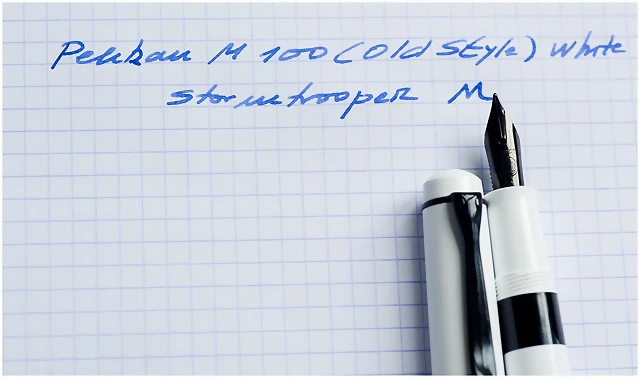 Pelikan M 100 (Old Style) White
Stormtrooper M